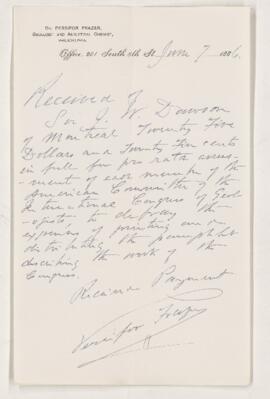 Dr. PERSIFOR FRAZER,
GEOLOGIST AND ANALYTICAL CHEMIST,
Office, 201 South 5th St. June 7 1886.
Received of
Sir J. W. Dawson
of Montreal Twenty Five
Dollars and Twenty five cents
in full for pro rata assess-
-ment of each member of the
American Committee of the
International Congress of Geol-
-ogists to defray the
expenses of printing and
distributing the pamphlet
describing the work of the
Congress.
Received Payment
Persifor Frazer